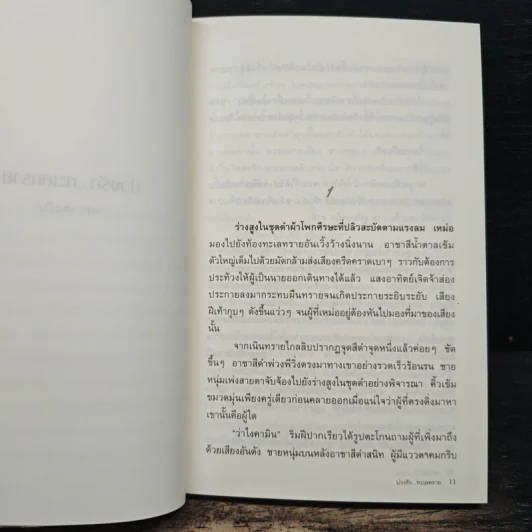 ๑
ร่างสูงในชุดดำผ้าโพกศีรษะที่ปลิวสะบัดตามแรงลม เหม่อ
มองไปยังท้องทะเลทรายอันเวิ้งว้างนิ่งนาน อาชาสีน้ำตาลเข้ม
ตัวใหญ่เต็มไปด้วยมัดกล้ามส่งเสียงครืดคราดเบาๆ ราวกับต้องการ
ประท้วงให้ผู้เป็นนายออกเดินทางได้แล้ว แสงอาทิตย์เจิดจ้าส่อง
ประกายลงมากระทบผืนทรายจนเกิดประกายระยิบระยับ เสียง
ฝีเท้ากุบๆ ดังขึ้นแว่วๆ จนผู้ที่เหม่ออยู่ต้องหันไปมองที่มาของเสียง
นั้น
จากเนินทรายไกลลิบปรากฏจุดสีดำจุดหนึ่งแล้วค่อยๆ ชัด
ขึ้นๆ อาชาสีดำพ่วงพีวิ่งตรงมาทางเขาอย่างรวดเร็วร้อนรน ชาย
หนุ่มเพ่งสายตาจับจ้องไปยังร่างสูงในชุดดำอย่างพิจารณา คิ้วเข้ม
ขมวดมุ่นเพียงครู่เดียวก่อนคลายออกเมื่อแน่ใจว่าผู้ที่ตรงดิ่งมาหา
เขานั้นคือผู้ใด
“ว่าไงคามิน” ริมฝีปากเรียวได้รูปตะโกนถามผู้ที่เพิ่งมาถึง
ด้วยเสียงอันดัง ชายหนุ่มบนหลังอาชาสีดำสนิท ผู้มีแววตาคมกริบ
บ่วงรัก...ทะเลทราย 11